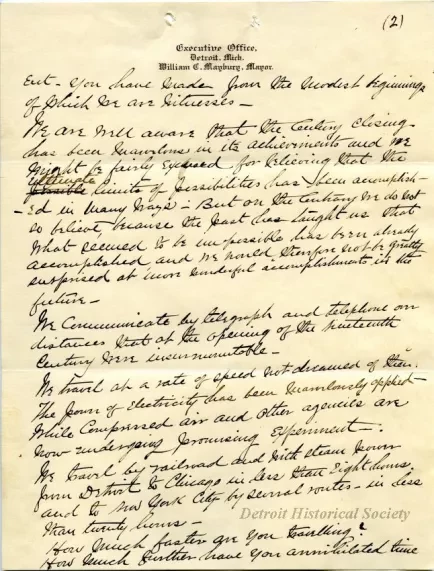 (2)
Executive Office,
Detroit, Mich.
William C. Maybury, Mayor.
ent - you have made from the modest beginnings
of which we are witnesses -
We are well aware that the Century closing
has been marvelous in its achievements and we
might be fairly excused for believing that the
ultimate limits of possibilities has been accomplish-
-ed in many ways - But on the contrary we do not
so believe, because the past has taught us that
what seemed to be impossible has been already
accomplished and we would therefore not be greatly
surprised at more wonderful accomplishments in the
future -
We Communicate by telegraph and telephone over
distances that at the opening of the nineteenth
Century were insurmountable -
We travel at a rate of speed not dreamed of then.
The power of Electricity has been marvelously applied
while Compressed air and other agencies are
now undergoing promising Experiment.
We travel by railroad and with steam power
from Detroit to Chicago in less than Eight hours.
and to New York City by several routes - in less
than twenty hours -
How much faster are you traveling?
How much further have you annihilated time
Detroit Historical Society